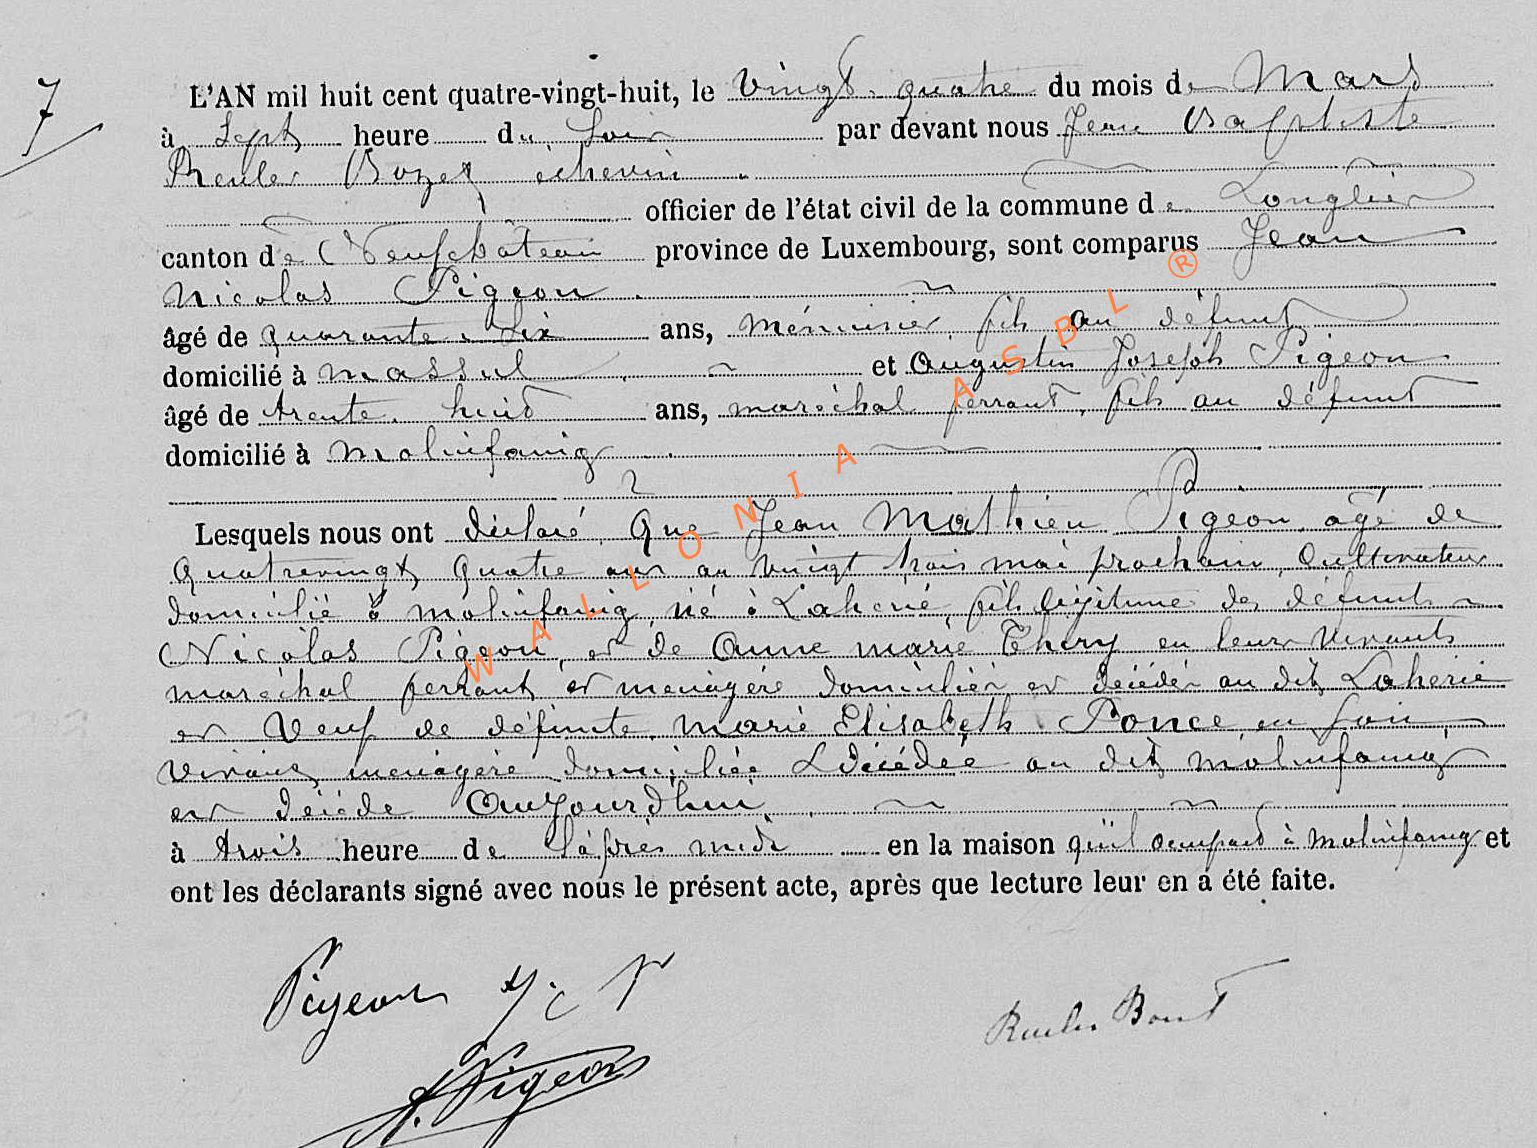 7
L'AN mil huit cent quatre-vingt-huit, le vingt quatre du mois de Mars
à Sept heure du Soir par devant nous Jean Baptiste
Reuler Bozet échevin
officier de l'état civil de la commune de Longlier
canton de Neufchâteau province de Luxembourg, sont comparus Jean
Nicolas Pigeon
âgé de quarante six ans, ménuisier fils au défunt
domicilié à Massul et Augustin Joseph Pigeon
âgé de trente huit ans, maréchal ferrant, fils au défunt
domicilié à Molinfaing
Lesquels nous ont déclaré que Jean Mathieu Pigeon agé de
Quatrevingt quatre ans au vingt trois mai prochain, Cultivateur
domicilié à molinfaing, né à Laherie, fils légitime des défunts
Nicolas Pigeon, et de Anne marie Thiry en leurs vivants
maréchal ferrant et menagère domiciliés et décédés au dit Laherie
et Veuf de défunte marie Elisabeth Ponce, en son
vivant menagère domiciliée & décédée au dit molinfaing
et décéde Aujourd'hui
à trois heure de l'après midi en la maison qu'il occupait à Molinfaing et
ont les déclarants signé avec nous le présent acte, après que lecture leur en a été faite.
Pigeon J. N
A. Pigeon
WALLONIA ASBL ®